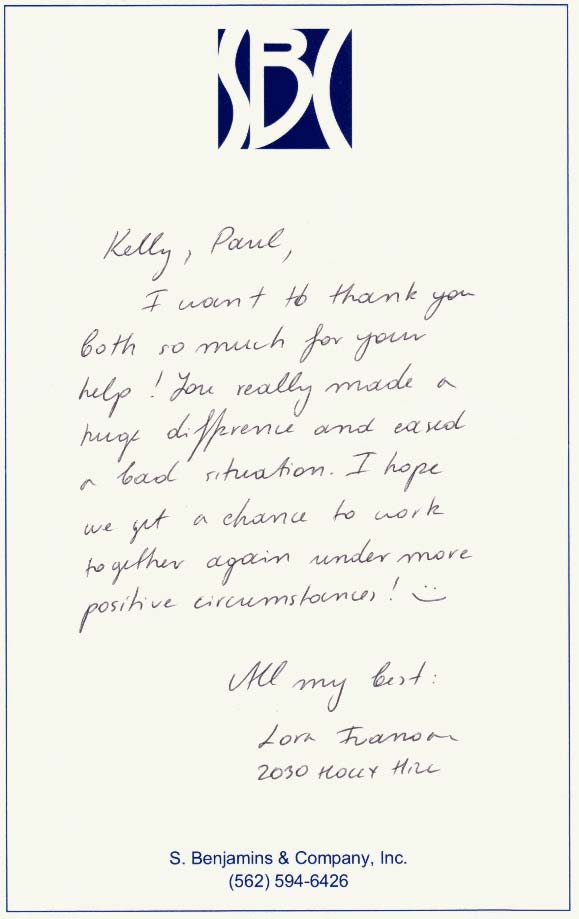 SBC
Kelly, Paul,
I want to thank you
both so much for your
help! You really made a
huge difference and eased
a bad situation. I hope
we get a chance to work
together again under more
positive circumstances! :)
All my best:
Lora
2030 Holly Hill
S. Benjamins & Company, Inc.
(562) 594-6426